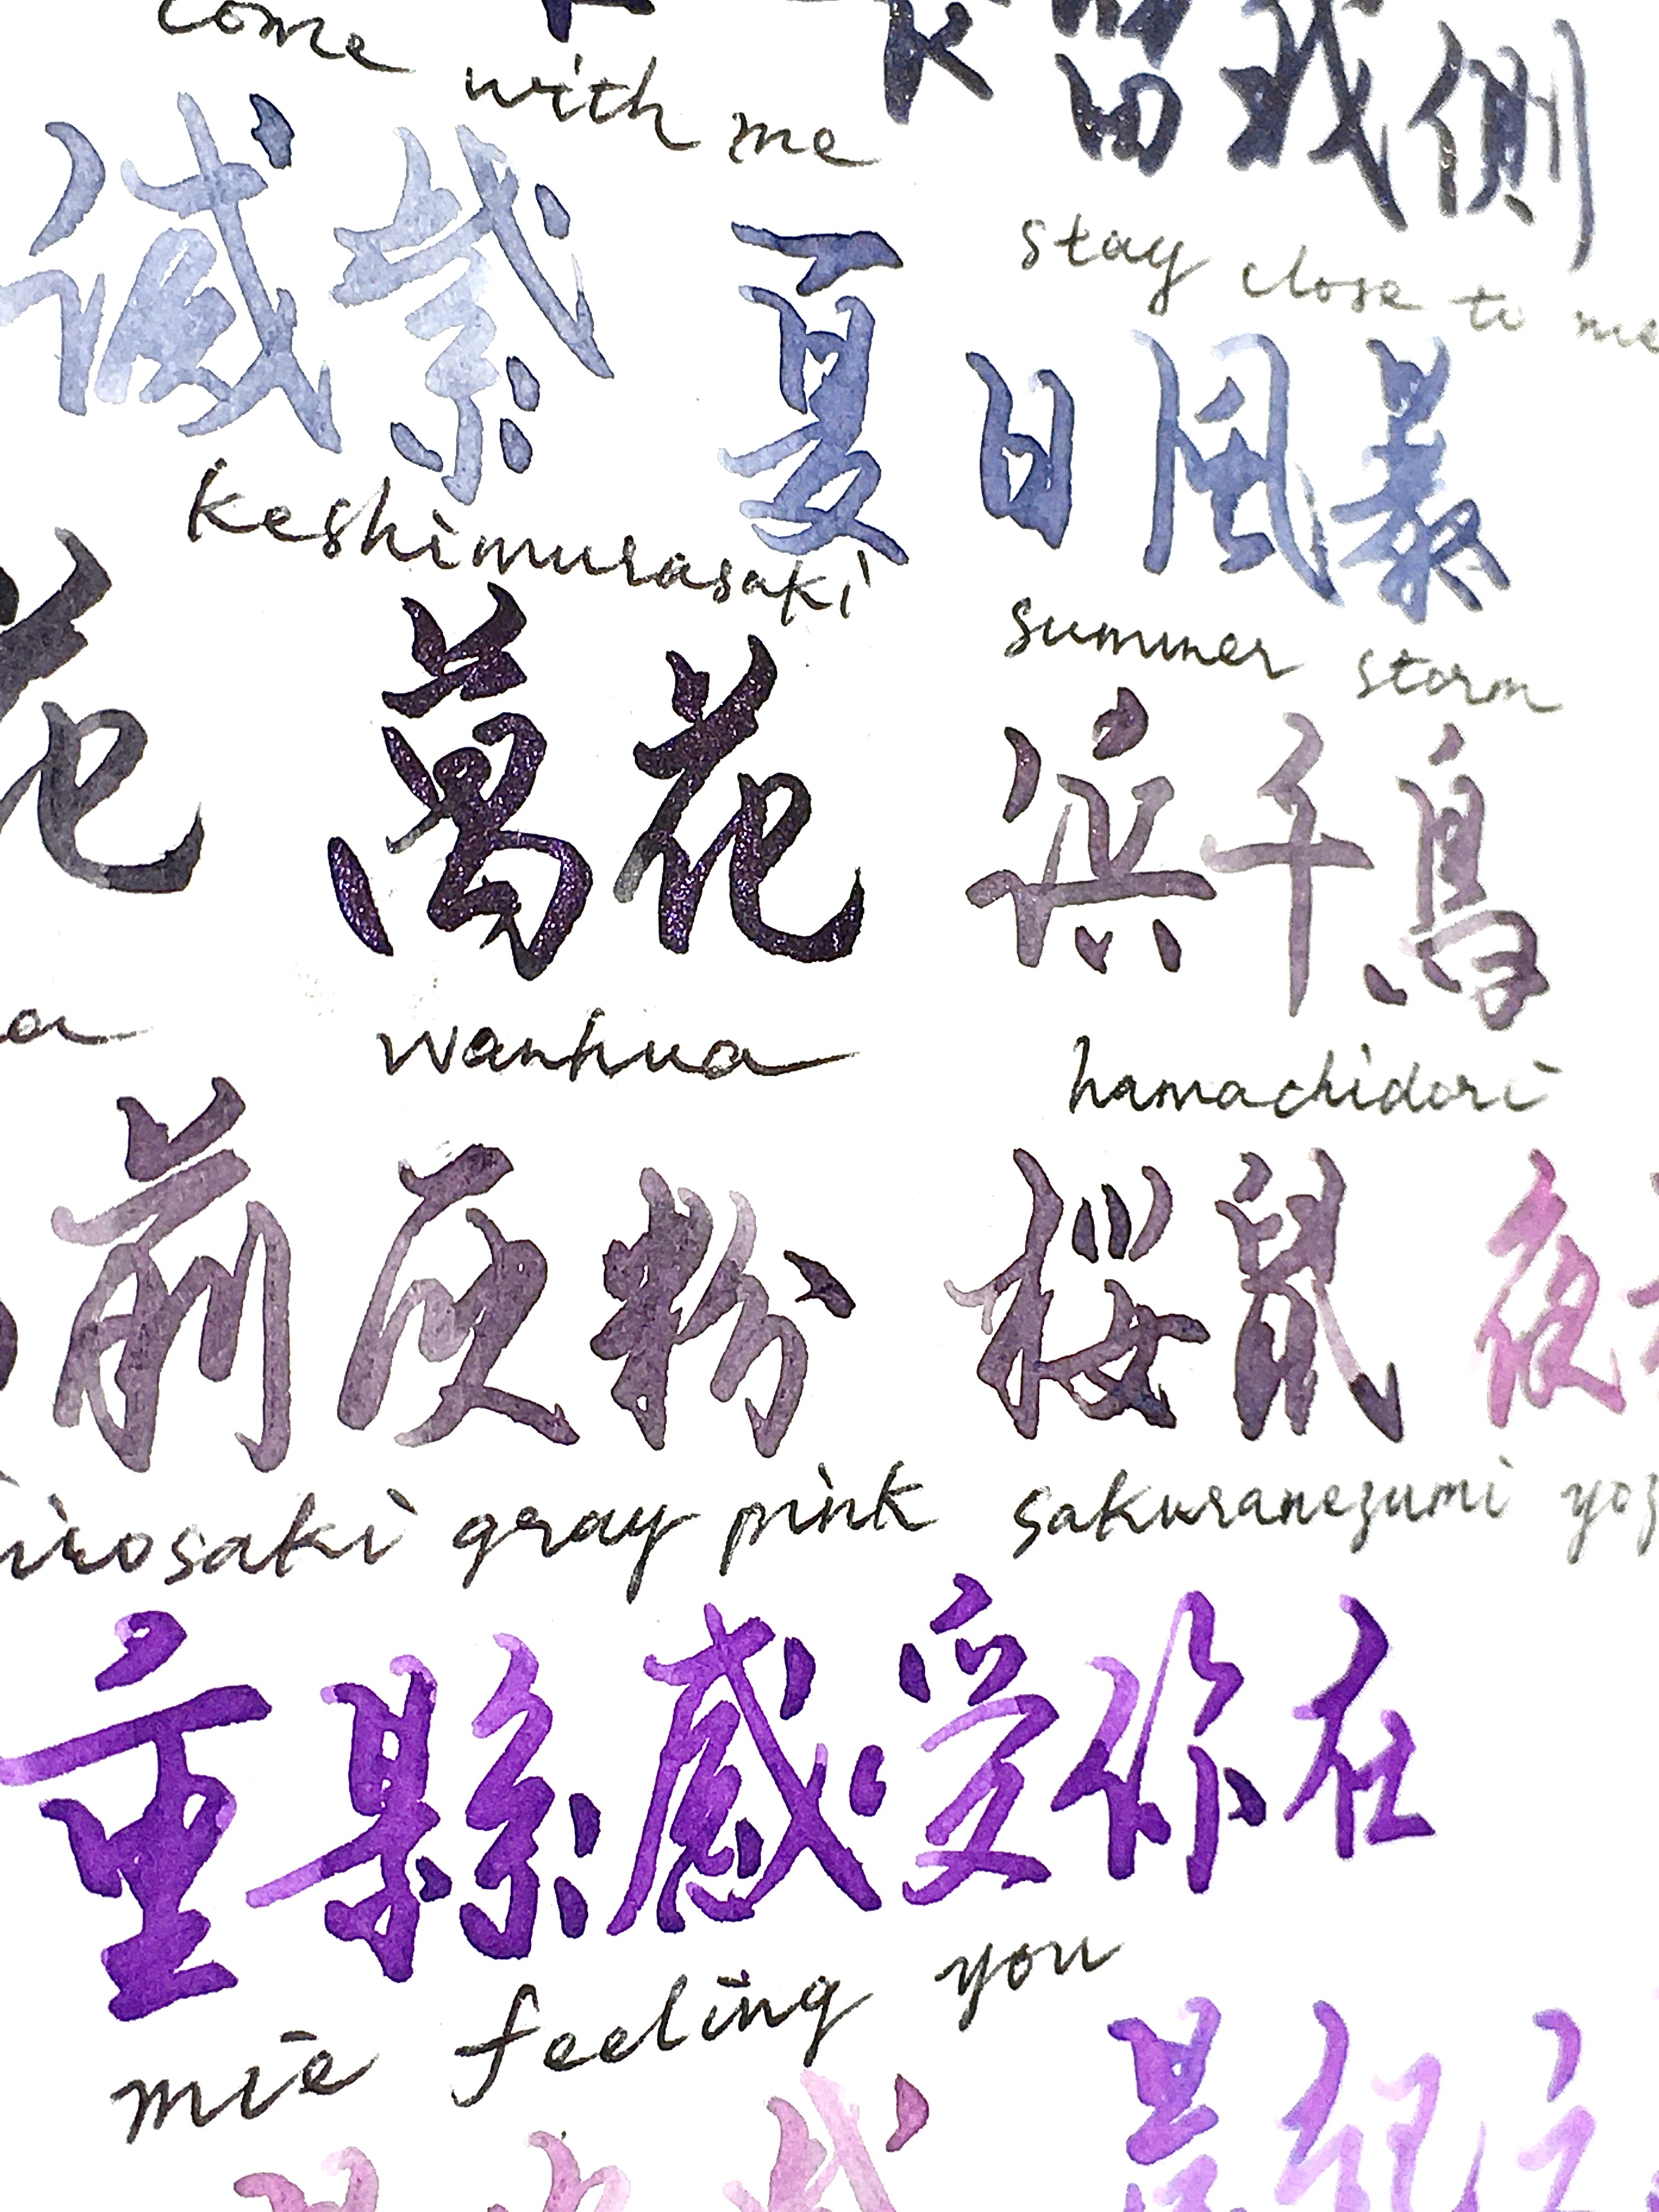 come with me
留我側
stay close to me
滅紫
keshimurasaki
夏日風暴
summer storm
花
萬花
wanhua
浜千鳥
hamachidori
前灰粉
irosaki gray pink
桜鼠
sakuranezumi
夜
yoz
重縣感受你在
mie feeling you